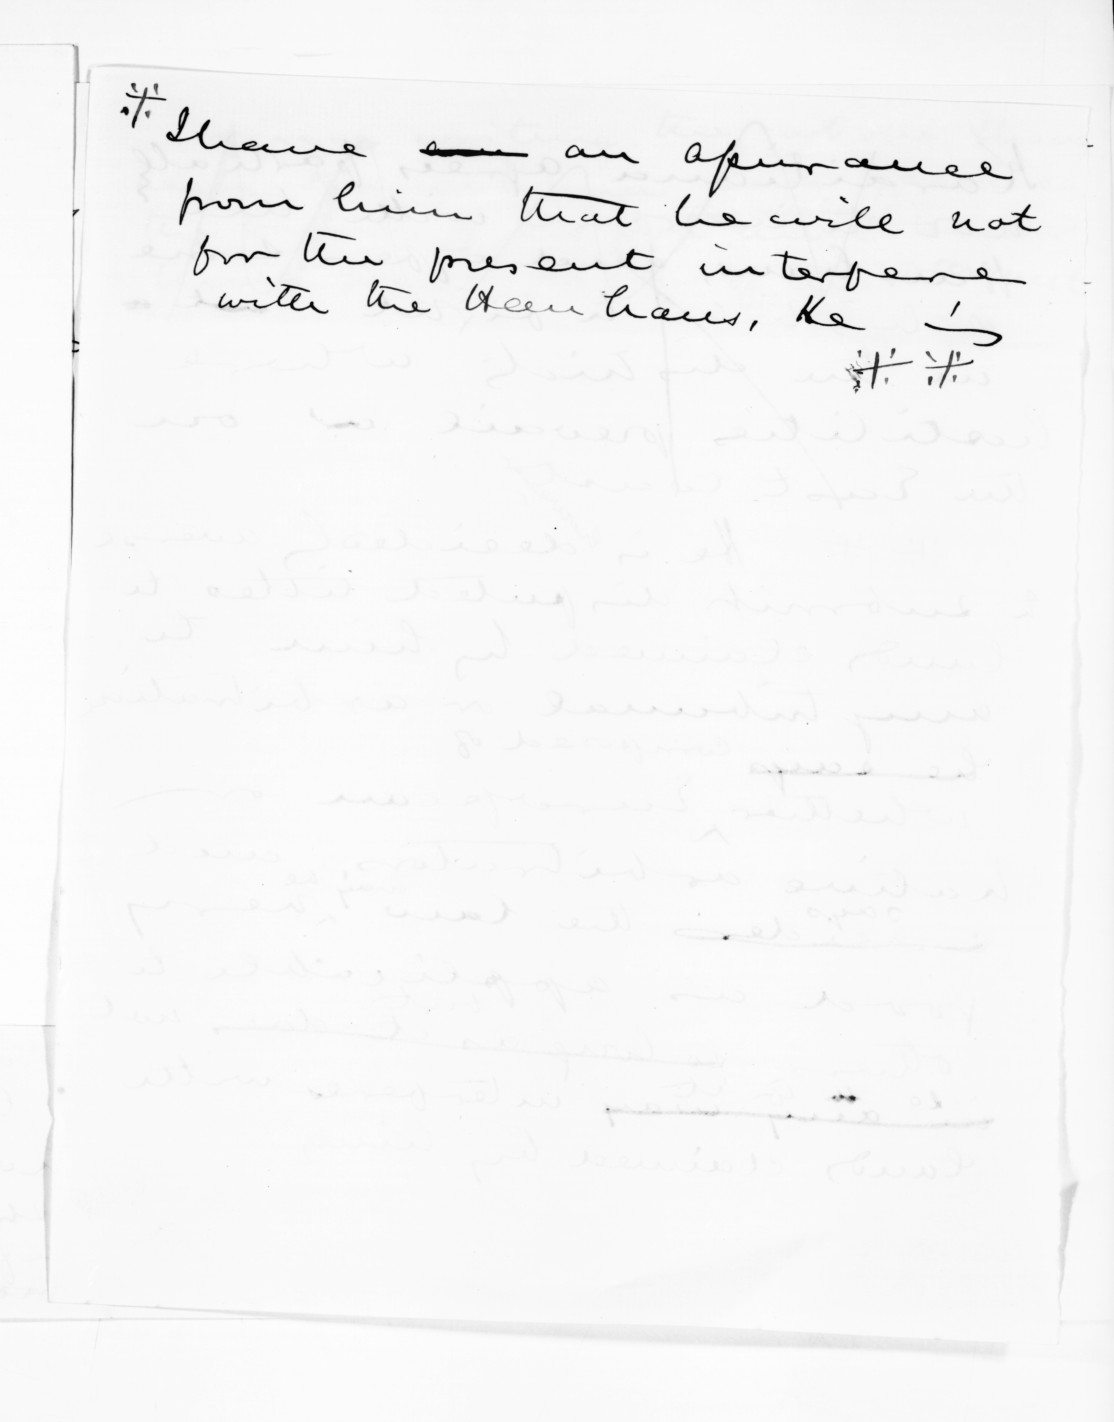 ※ I have ~~an~~ an assurance
from him that he will not
for the present interfere
with the Hauhaus, He is
※ ※